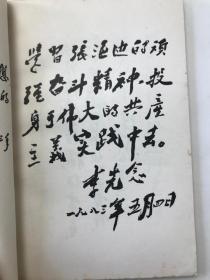 学習張海迪的顽
强奋斗精神、投
身于伟大的共產
主義实践中去。
李先念
一九八三年五月四日